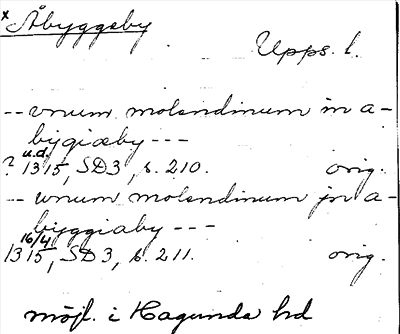 x Åbyggeby
Upps. l.
-- vnum molendinum in a-
bygiæby ---
u.d.
? 1315, SD3, s. 210. orig.
-- unum molendinum jn a-
byggiaby ---
16/4
1315, SD3, s. 211. orig.
möjl. i Hagunda hd